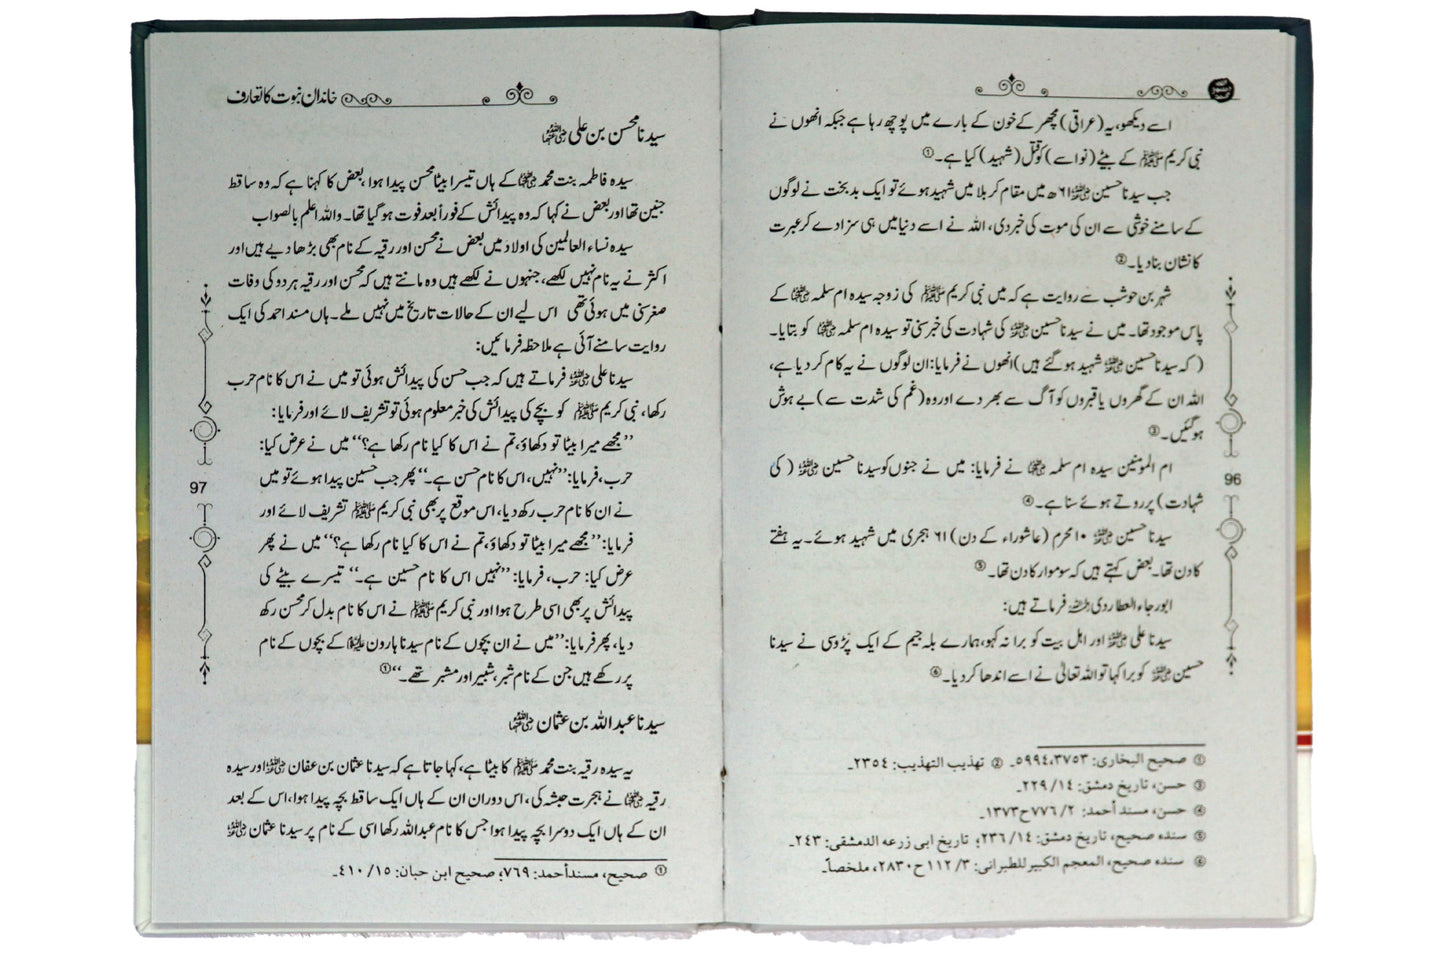 اسے دیکھو، یہ (عراقی) مچھر کے خون کے بارے میں پوچھ رہا ہے جبکہ انھوں نے
نبی کریم ﷺ کے بیٹے (نواسے) کو قتل (شہید) کیا ہے۔①
جب سیدنا حسین رضی اللہ عنہ ۶۱ھ میں مقام کربلا میں شہید ہوئے تو ایک بدبخت نے لوگوں
کے سامنے خوشی سے ان کی موت کی خبر دی، اللہ نے اسے دنیا میں ہی سزا دے کر عبرت
کا نشان بنا دیا۔②
شہر بن حوشب سے روایت ہے کہ میں نبی کریم ﷺ کی زوجہ سیدہ ام سلمہ رضی اللہ عنہا کے
پاس موجود تھا۔ میں نے سیدنا حسین رضی اللہ عنہ کی شہادت کی خبر سنی تو سیدہ ام سلمہ رضی اللہ عنہا کو بتایا۔
(کہ سیدنا حسین رضی اللہ عنہ شہید ہو گئے ہیں) انھوں نے فرمایا: ان لوگوں نے یہ کام کر دیا ہے،
اللہ ان کے گھروں یا قبروں کو آگ سے بھر دے اور وہ (غم کی شدت سے) بے ہوش
ہو گئیں۔③
ام المومنین سیدہ ام سلمہ رضی اللہ عنہا نے فرمایا: میں نے جنوں کو سیدنا حسین رضی اللہ عنہ (کی
شہادت) پر روتے ہوئے سنا ہے۔④
سیدنا حسین رضی اللہ عنہ ۱۰ محرم (عاشوراء کے دن) ۶۱ ہجری میں شہید ہوئے۔ یہ ہفتے
کا دن تھا۔ بعض کہتے ہیں کہ سوموار کا دن تھا۔⑤
ابو رجاء العطاردی رحمہ اللہ فرماتے ہیں:
سیدنا علی رضی اللہ عنہ اور اہل بیت کو برا نہ کہو، ہمارے بلہجیم کے ایک پڑوسی نے سیدنا
حسین رضی اللہ عنہ کو برا کہا تو اللہ تعالیٰ نے اسے اندھا کر دیا۔⑥
① صحیح البخاری: ۳۷۵۳،۵۹۹۴۔ ② تھذیب التھذیب: ۲۳۵۴۔
③ حسن، تاریخ دمشق: ۱۴/ ۲۲۹۔
④ حسن، مسند أحمد: ۲/ ۷۷۶ ح۱۳۷۳۔
⑤ سندہ صحیح، تاریخ دمشق: ۱۴/ ۲۳۶؛ تاریخ ابی زرعه الدمشقی: ۲۴۳۔
⑥ سندہ صحیح، المعجم الکبیر للطبرانی: ۳/ ۱۱۲ ح۲۸۳۰، ملخصاً۔
96
خاندان نبوت کا تعارف
سیدنا محسن بن علی رضی اللہ عنہما
سیدہ فاطمہ بنت محمد رضی اللہ عنہا کے ہاں تیسرا بیٹا محسن پیدا ہوا بعض کا کہنا ہے کہ وہ ساقط
جنین تھا اور بعض نے کہا کہ وہ پیدائش کے فوراً بعد فوت ہو گیا تھا۔ واللہ اعلم بالصواب
سیدہ نساء العالمین کی اولاد میں بعض نے محسن اور رقیہ کے نام بھی بڑھا دیے ہیں اور
اکثر نے یہ نام نہیں لکھے، جنہوں نے لکھے ہیں وہ مانتے ہیں کہ محسن اور رقیہ ہر دو کی وفات
صغر سنی میں ہوئی تھی اس لیے ان کے حالات تاریخ میں نہیں ملے۔ ہاں مسند احمد کی ایک
روایت سامنے آئی ہے ملاحظہ فرمائیں:
سیدنا علی رضی اللہ عنہ فرماتے ہیں کہ جب حسن کی پیدائش ہوئی تو میں نے اس کا نام حرب
رکھا، نبی کریم ﷺ کو بچے کی پیدائش کی خبر معلوم ہوئی تو تشریف لائے اور فرمایا:
’’مجھے میرا بیٹا تو دکھاؤ، تم نے اس کا کیا نام رکھا ہے؟‘‘ میں نے عرض کیا:
حرب، فرمایا: ’’نہیں، اس کا نام حسن ہے۔‘‘ پھر جب حسین پیدا ہوئے تو میں
نے ان کا نام حرب رکھ دیا، اس موقع پر بھی نبی کریم ﷺ تشریف لائے اور
فرمایا: ’’مجھے میرا بیٹا تو دکھاؤ، تم نے اس کا کیا نام رکھا ہے؟‘‘ میں نے پھر
عرض کیا: حرب، فرمایا: ’’نہیں اس کا نام حسین ہے۔‘‘ تیسرے بیٹے کی
پیدائش پر بھی اسی طرح ہوا اور نبی کریم ﷺ نے اس کا نام بدل کر محسن رکھ
دیا، پھر فرمایا: ’’میں نے ان بچوں کے نام سیدنا ہارون علیہ السلام کے بچوں کے نام
پر رکھے ہیں جن کے نام شبر، شبیر اور مشبر تھے۔‘‘①
سیدنا عبداللہ بن عثمان رضی اللہ عنہما
یہ سیدہ رقیہ بنت محمد ﷺ کا بیٹا ہے، کہا جاتا ہے کہ سیدنا عثمان بن عفان رضی اللہ عنہ اور سیدہ
رقیہ رضی اللہ عنہا نے ہجرت حبشہ کی، اس دوران ان کے ہاں ایک ساقط بچہ پیدا ہوا، اس کے بعد
ان کے ہاں ایک دوسرا بچہ پیدا ہوا جس کا نام عبداللہ رکھا اسی کے نام پر سیدنا عثمان رضی اللہ عنہ
① صحیح، مسند أحمد: ۷۶۹؛ صحیح ابن حبان: ۱۵/ ۴۱۰۔
97